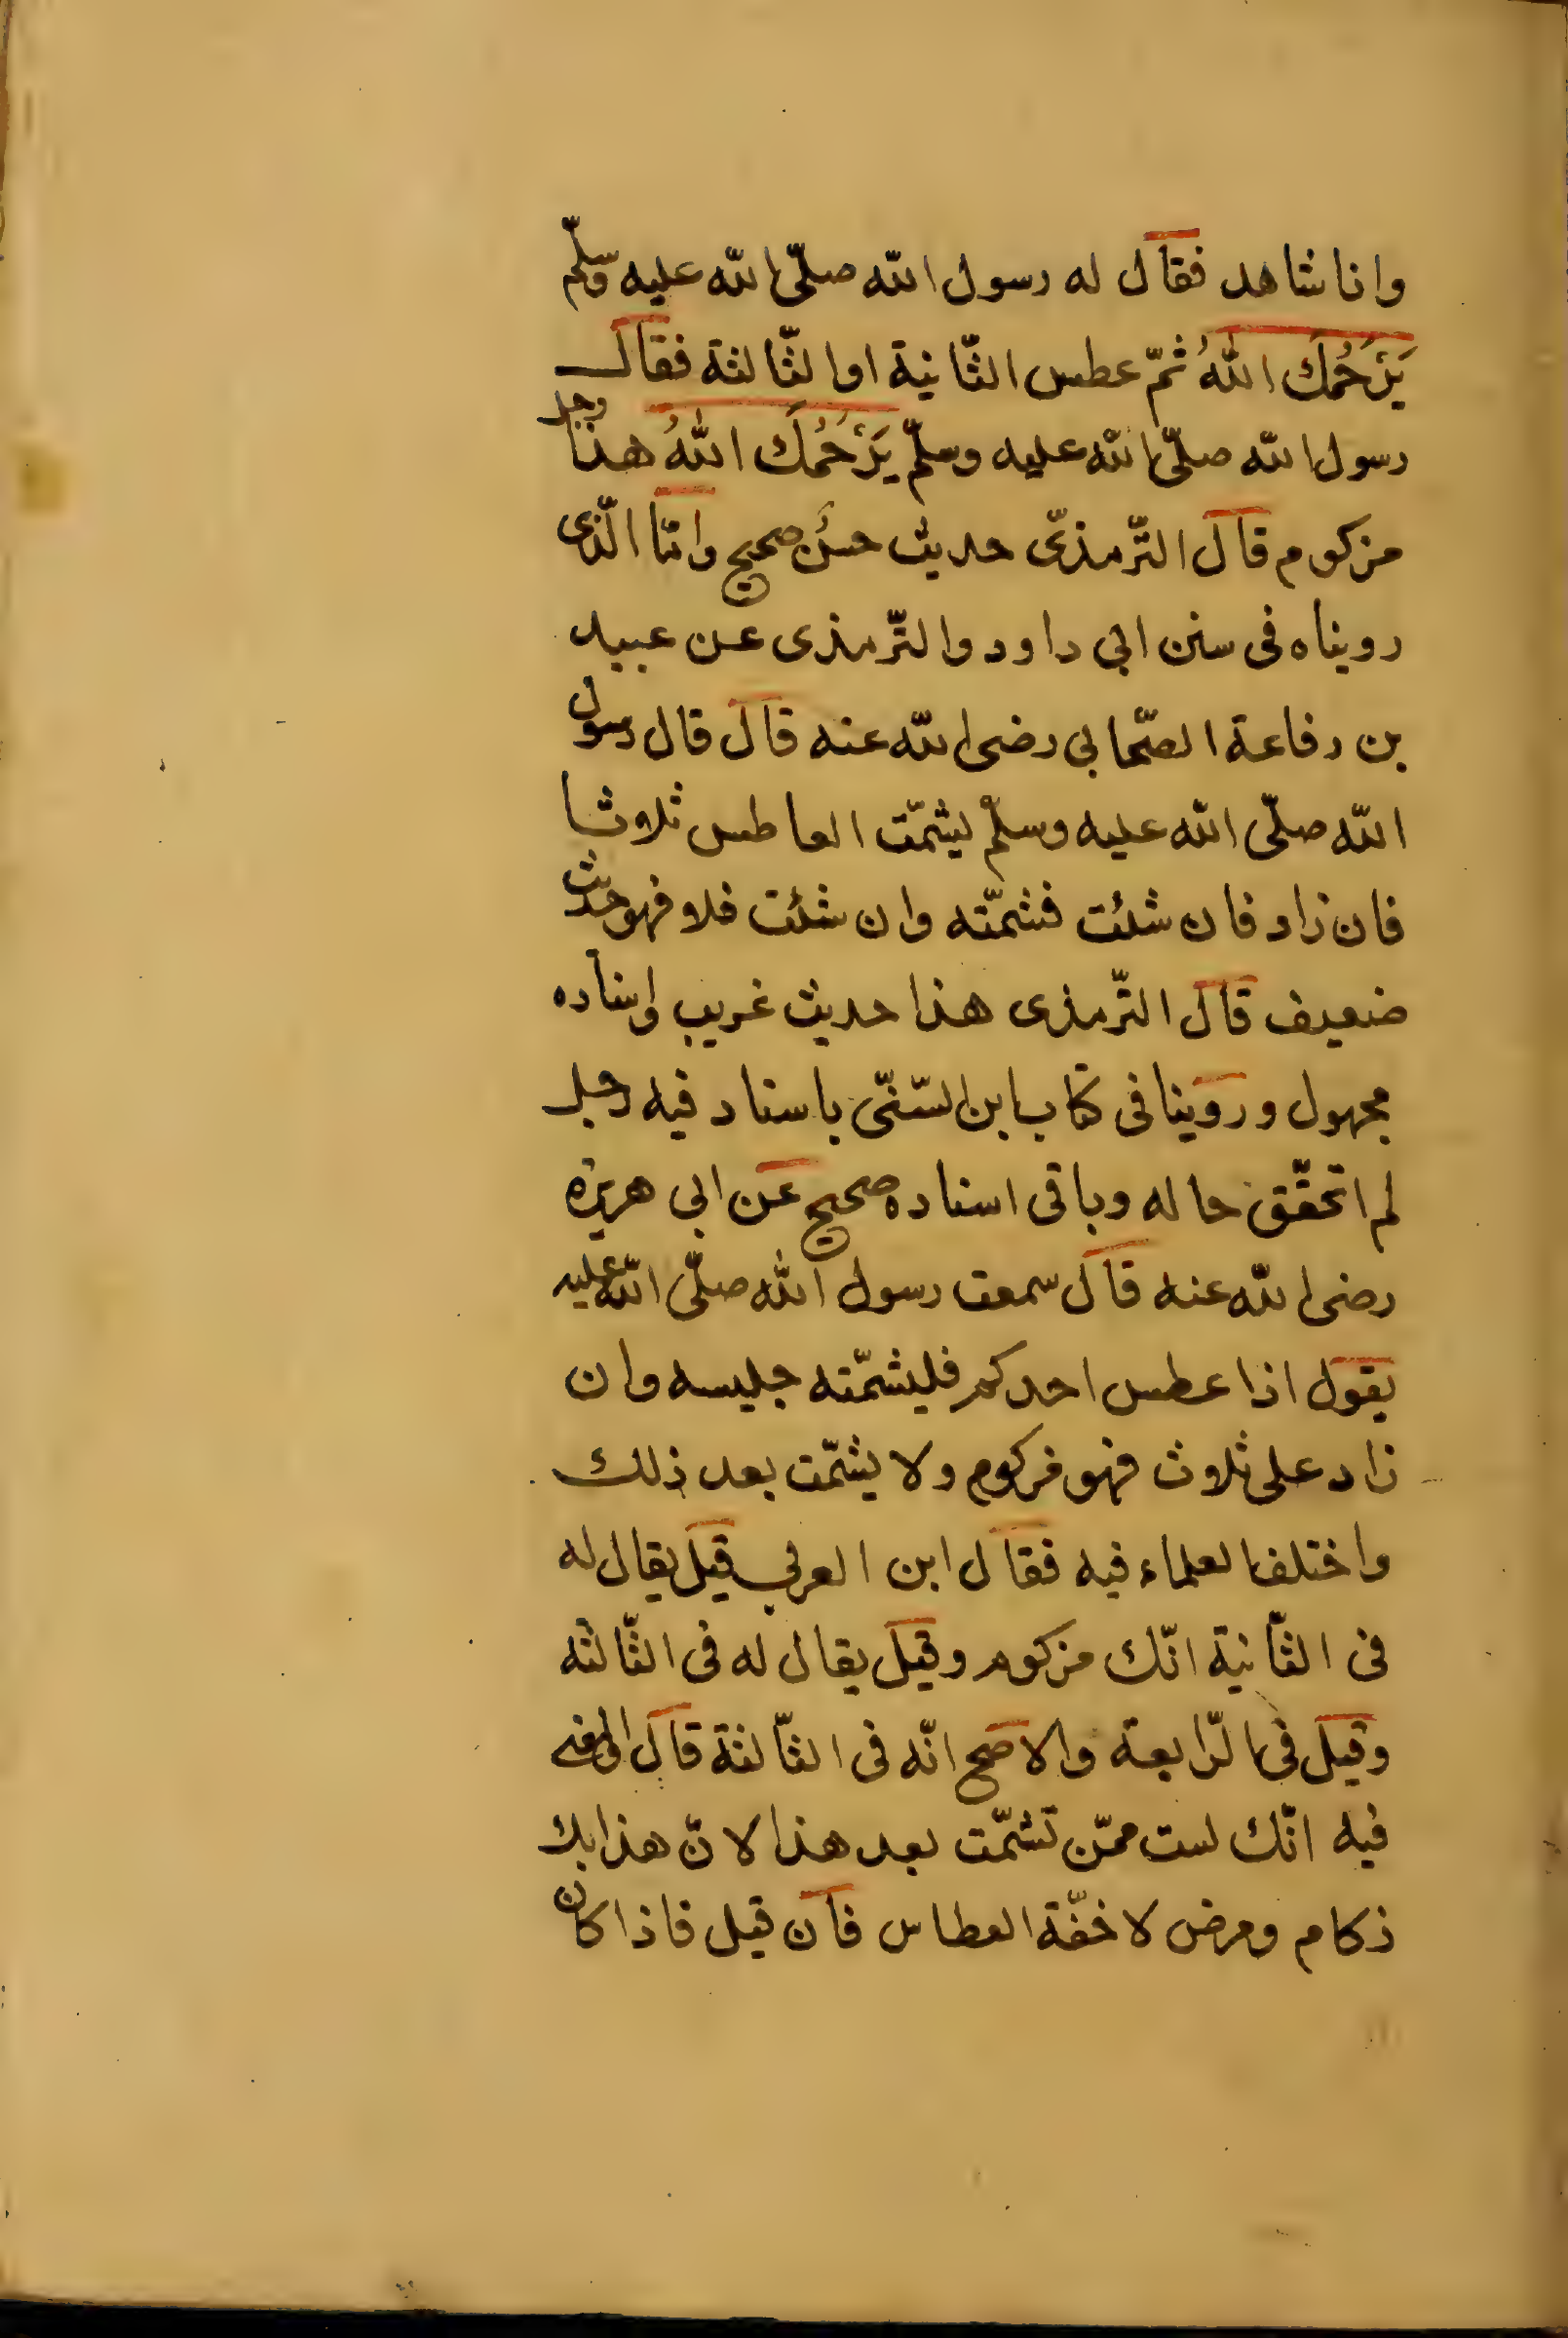 وانا شاهد فقال له رسول الله صلّى الله عليه وسلّم
يَرْحَمُكَ اللهُ ثمّ عطس الثّانية او الثّالثة فقال
رسول الله صلّى الله عليه وسلّم يَرْحَمُكَ اللهُ هذا رجل
مزكوم قال التّرمذىّ حديث حسن صحيح وامّا الّذى
رويناه فى سنن ابي داود والتّرمذى عن عبيد
بن رفاعة الصّحابي رضى الله عنه قال قال رسول
الله صلّى الله عليه وسلّم يشمّت العاطس ثلاوثا
فان زاد فان شئت فشمّته وان شئت فلا فهو حديث
ضعيف قال التّرمذى هذا حديث غريب واسناده
مجهول وروينا فى كتاب ابن السّنّى باسناد فيه رجل
لم اتحقّق حاله وباقى اسناده صحيح عن ابي هريرة
رضى الله عنه قال سمعت رسول الله صلّى الله عليه
يقول اذا عطس احدكم فليشمّته جليسه وان
زاد على ثلاوث فهو مزكوم ولا يشمّت بعد ذلك
واختلف العلماء فيه فقال ابن العربي قيل يقال له
فى الثّانية انّك مزكوم وقيل يقال له فى الثّالثه
وقيل فى الرّابعة والاصح انّه فى الثّالثة قال والمعنى
فيه انّك لست ممّن تشمّت بعد هذا لانّ هذا بك
زكام ومرض لا خفّة العطاس فان قيل فاذا كان